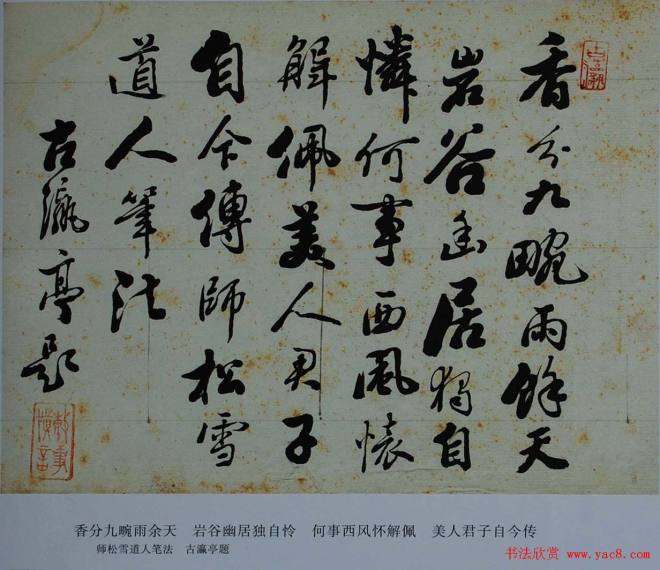 香分九畹雨餘天
岩谷幽居獨自
憐何事西風懷
解佩美人君子
自今傳師松雪
道人筆法
古瀛亭題
香分九畹雨余天 岩谷幽居独自怜 何事西风怀解佩 美人君子自今传
师松雪道人笔法 古瀛亭题
书法欣赏 www.yac8.com